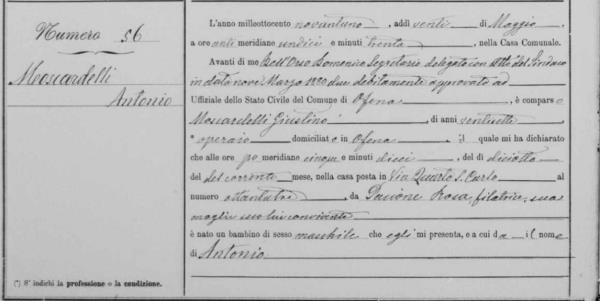 Numero 56
Moscardelli
Antonio
(*) S' indichi la professione o la condizione.
L'anno milleottocento novantuno, addì venti di Maggio,
a ore anti meridiane undici e minuti trenta, nella Casa Comunale.
Avanti di me Dell'Orso Domenico Segretario delegato con atto del Sindaco
in data nove Marzo 1880 due debitamente approvato ad
Uffiziale dello Stato Civile del Comune di Ofena, è comparso
Moscardelli Giustino, di anni ventisette
* operaio domiciliato in Ofena, il quale mi ha dichiarato
che alle ore po meridiane cinque e minuti dieci, del dì diciotto
del corrente mese, nella casa posta in Via Quarto S. Carlo al
numero ottantatre, da Pacione Rosa, filatrice, sua
moglie seco lui convivente
è nato un bambino di sesso maschile che egli mi presenta, e a cui da il nome
di Antonio